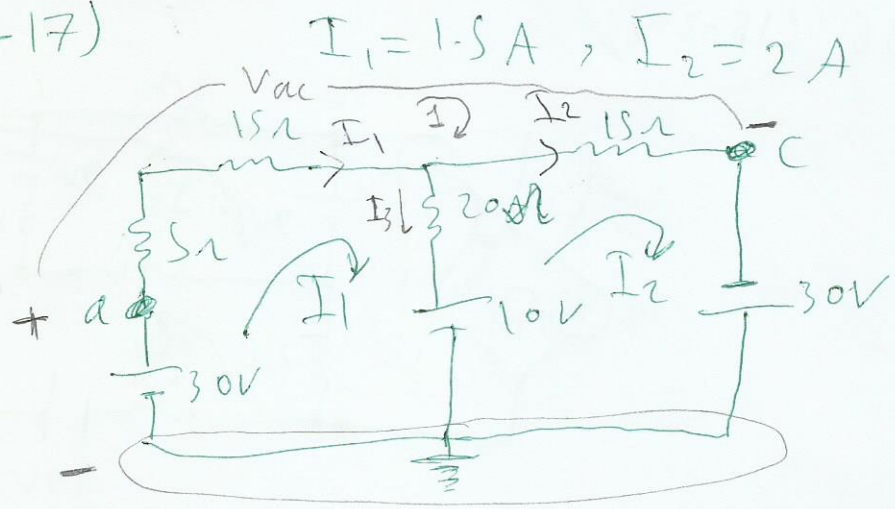 -17) I₁ = 1.5 A , I₂ = 2 A
Vac
15Ω I₁ 1 I₂ 15Ω
- C
I₃ 20Ω
5Ω
I₁ I₂
+ a 10V 30V
30V
-